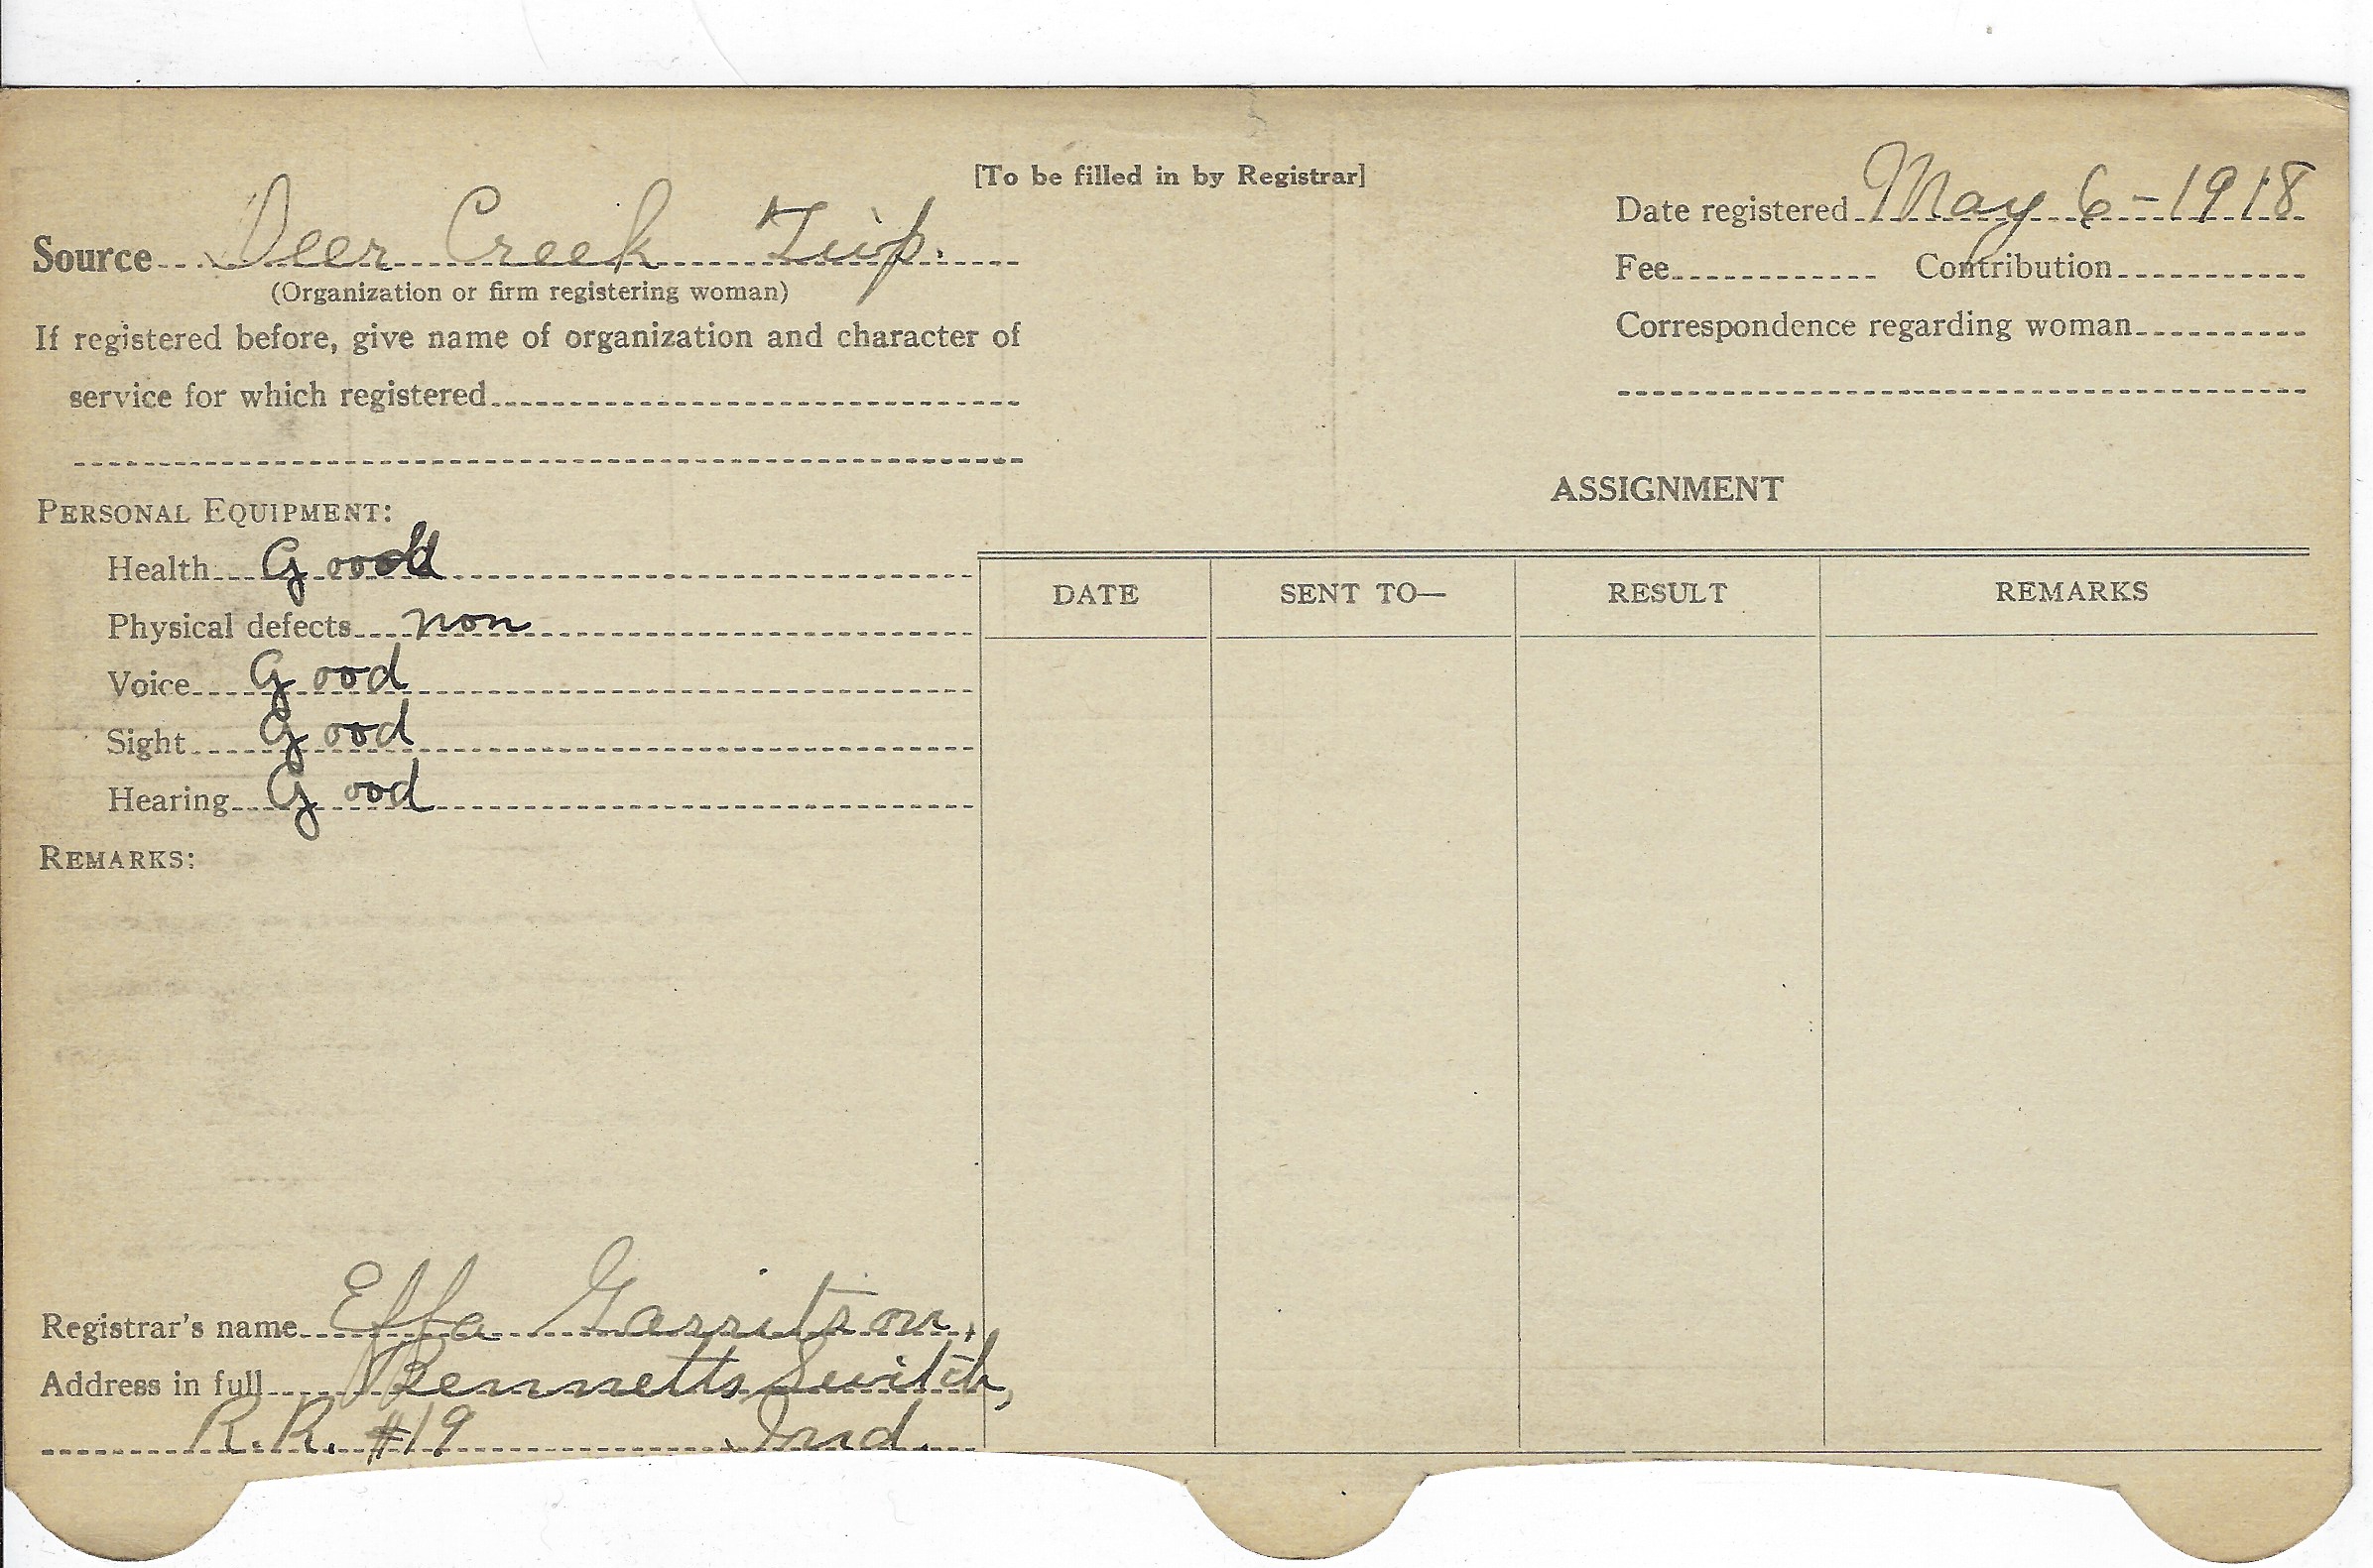 [To be filled in by Registrar]
Source Deer Creek Twp.
(Organization or firm registering woman)
If registered before, give name of organization and character of
service for which registered
Date registered May 6-1918
Fee Contribution
Correspondence regarding woman
PERSONAL EQUIPMENT:
Health Good
Physical defects non
Voice Good
Sight Good
Hearing Good
REMARKS:
ASSIGNMENT
DATE SENT TO— RESULT REMARKS
Registrar's name Effa Garritson,
Address in full Bennetts Switch,
R.R. #19 Ind.